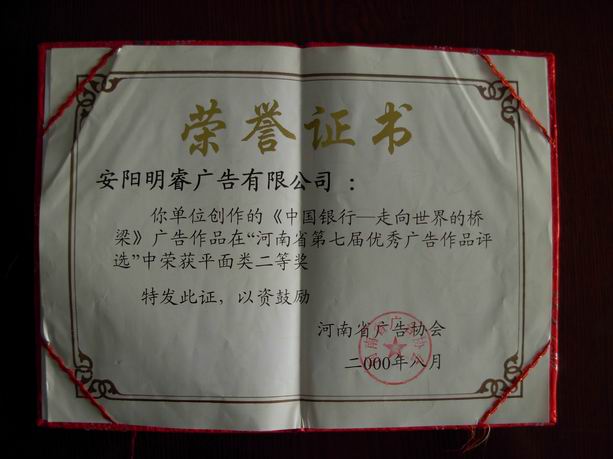 荣誉证书
安阳明睿广告有限公司：
你单位创作的《中国银行—走向世界的桥
梁》广告作品在“河南省第七届优秀广告作品评
选”中荣获平面类二等奖
特发此证，以资鼓励
河南省广告协会
二000年八月
河南省广告协会